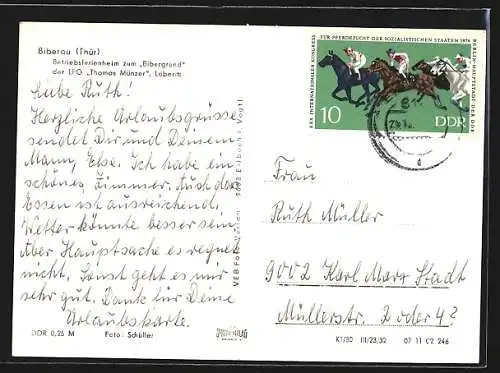 Biberau (Thür)
Betriebsferienheim zum „Bibergrund"
der LPG „Thomas Münzer", Löberitz
Liebe Ruth!
Herzliche Urlaubsgrüsse
sendet Dir und Deinem
Mann, Else. Ich habe ein
schönes Zimmer. Auch das
Essen ist ausreichend.
Wetter könnte besser sein,
Aber Hauptsache es regnet
nicht. Sonst geht es mir
sehr gut. Dank für Deine
Urlaubskarte.
DDR 0,25 M Foto: Schüller
VEB Foto-Verlag
XXIII. INTERNATIONALER KONGRESS FÜR PFERDEZUCHT DER SOZIALISTISCHEN STAATEN 1974 BERLIN-HAUPTSTADT DER DDR
10
DDR
Frau
Ruth Müller
9002 Karl Marx Stadt
Müllerstr. 2 oder 4?
K1/80 III/23,32 07 11 02 246